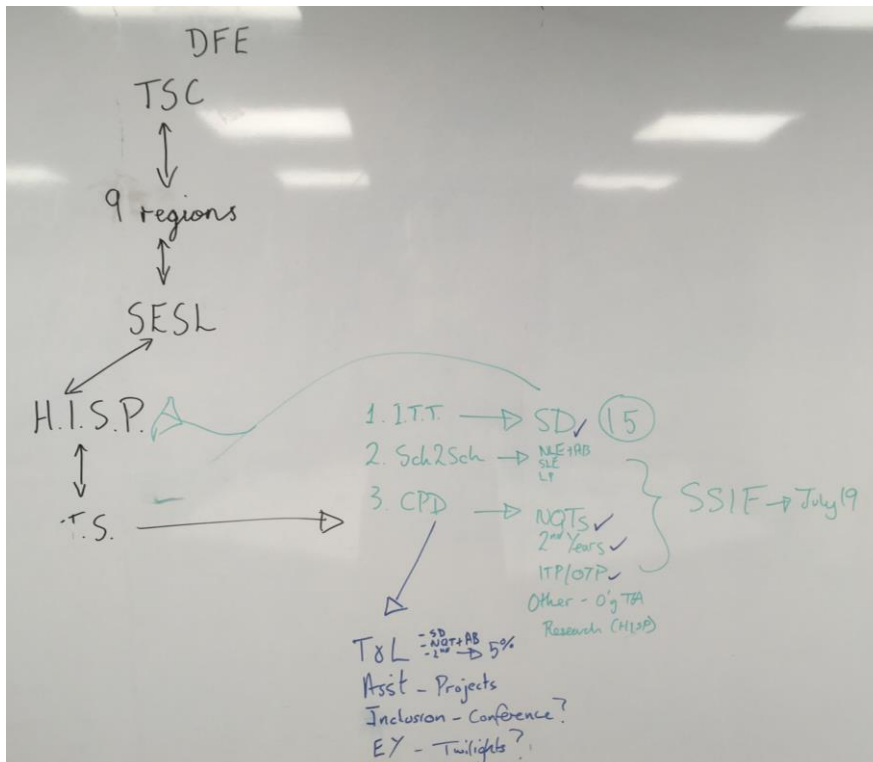 DFE
TSC
9 regions
SESL
H.I.S.P.
T.S.
1. I.T.T. SD 15
2. Sch2Sch NLE+AB
SLE
LP
3. CPD NQTs
2nd Years
ITP/OTP
Other - O'g
Research (HISP)
SSIF → July 19
T&L - SD
- NQT+AB
- 2nd → 5%
Asst - Projects
Inclusion - Conference?
EY - Twilights?